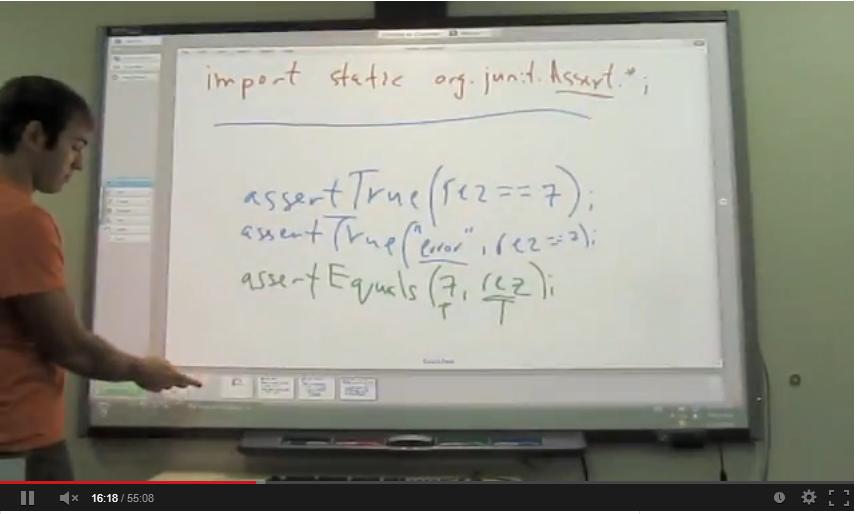 import static org.junit.Assert.*;
assertTrue(rez==7);
assertTrue("error", rez==7);
assertEquals(7, rez);
T T
16:18 / 55:08